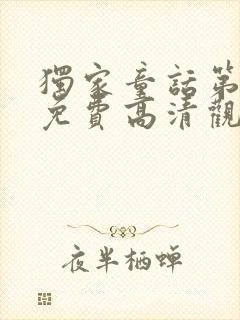 獨家童話第
免費高清觀
夜半栖蝉